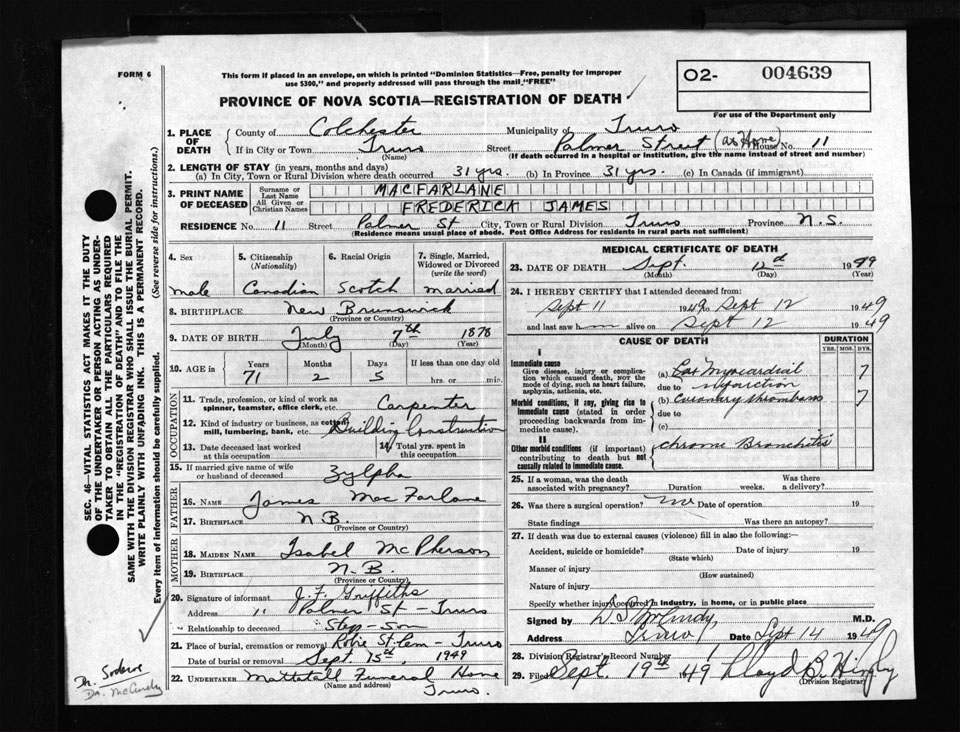 FORM 6
This form if placed in an envelope, on which is printed "Dominion Statistics—Free, penalty for improper
use $300," and properly addressed will pass through the mail "FREE"
PROVINCE OF NOVA SCOTIA—REGISTRATION OF DEATH
02- 004639
For use of the Department only
1. PLACE OF DEATH
County of Colchester Municipality of Truro
If in City or Town Truro Street Palmer Street (at Home) House No. 11
(Name) (If death occurred in a hospital or institution, give the name instead of street and number)
2. LENGTH OF STAY (in years, months and days)
(a) In City, Town or Rural Division where death occurred 31 yrs. (b) In Province 31 yrs. (c) In Canada (if immigrant)
3. PRINT NAME OF DECEASED
Surname or Last Name MACFARLANE
All Given or Christian Names FREDERICK JAMES
RESIDENCE No. 11 Street Palmer St City, Town or Rural Division Truro Province N.S.
(Residence means usual place of abode. Post Office Address for residents in rural parts not sufficient)
4. Sex
male
5. Citizenship (Nationality)
Canadian
6. Racial Origin
Scotch
7. Single, Married, Widowed or Divorced (write the word)
married
8. BIRTHPLACE New Brunswick
(Province or Country)
9. DATE OF BIRTH July 7th 1878
(Month) (Day) (Year)
10. AGE in Years Months Days If less than one day old
71 2 5 hrs. or min.
OCCUPATION
11. Trade, profession, or kind of work as
spinner, teamster, office clerk, etc. Carpenter
12. Kind of industry or business, as cotton
mill, lumbering, bank, etc. Building Construction
13. Date deceased last worked
at this occupation
14. Total yrs. spent in
this occupation
15. If married give name of wife
or husband of deceased Zylpha
FATHER
16. NAME James MacFarlane
17. BIRTHPLACE N.B.
(Province or Country)
MOTHER
18. MAIDEN NAME Isabel McPherson
19. BIRTHPLACE N.B.
(Province or Country)
20. Signature of informant J. F. Griffiths
Address 11 Palmer St - Truro
Relationship to deceased Step-Son
21. Place of burial, cremation or removal Robie St. Cem - Truro
Date of burial or removal Sept. 15th, 1949
22. UNDERTAKER Mattatall Funeral Home
(Name and address) Truro.
MEDICAL CERTIFICATE OF DEATH
23. DATE OF DEATH Sept. 12th 1949
(Month) (Day) (Year)
24. I HEREBY CERTIFY that I attended deceased from:
Sept 11 1949 to Sept 12 1949
and last saw him alive on Sept 12 1949
CAUSE OF DEATH
DURATION
YRS. MOS. DYS.
I
Immediate cause
Give disease, injury or complication
which caused death, not the
mode of dying, such as heart failure,
asphyxia, asthenia, etc.
(a) Myocardial 7
due to infarction
Morbid conditions, if any, giving rise to
immediate cause (stated in order
proceeding backwards from immediate
cause).
(b) Coronary thrombosis 7
due to
(c)
II
Other morbid conditions (if important)
contributing to death but not
causally related to immediate cause.
Chronic Bronchitis
25. If a woman, was the death
associated with pregnancy? Duration weeks. Was there a delivery?
26. Was there a surgical operation? no Date of operation 19
State findings Was there an autopsy?
27. If death was due to external causes (violence) fill in also the following:
Accident, suicide or homicide? Date of injury 19
(State which)
Manner of injury
(How sustained)
Nature of injury
Specify whether injury occurred in industry, in home, or in public place
Signed by D S McCurdy M.D.
Address Truro Date Sept 14 1949
28. Division Registrar's Record Number
29. Filed Sept. 19th 1949 Lloyd B.
(Division Registrar)
SEC. 46—VITAL STATISTICS ACT MAKES IT THE DUTY
OF THE UNDERTAKER OR PERSON ACTING AS UNDERTAKER
TO OBTAIN ALL THE PARTICULARS REQUIRED
IN THE "REGISTRATION OF DEATH" AND TO FILE THE
SAME WITH THE DIVISION REGISTRAR WHO SHALL ISSUE THE BURIAL PERMIT.
WRITE PLAINLY WITH UNFADING INK. THIS IS A PERMANENT RECORD.
Every item of information should be carefully supplied. (See reverse side for instructions.)
Dr.
Dr. McCurdy